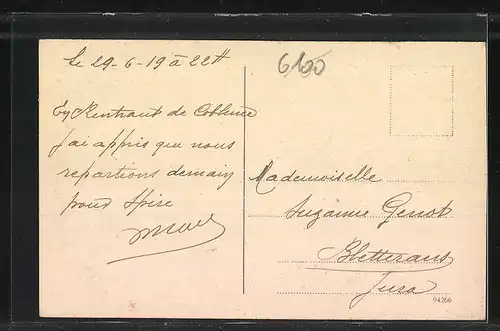 Le 29-6-19 à 22H
6100
En Rentrant de Coblence
j'ai appris que nous
repartions demain
pour Spire
Mademoiselle
Suzanne Genot
Bletterans
Jura
94266